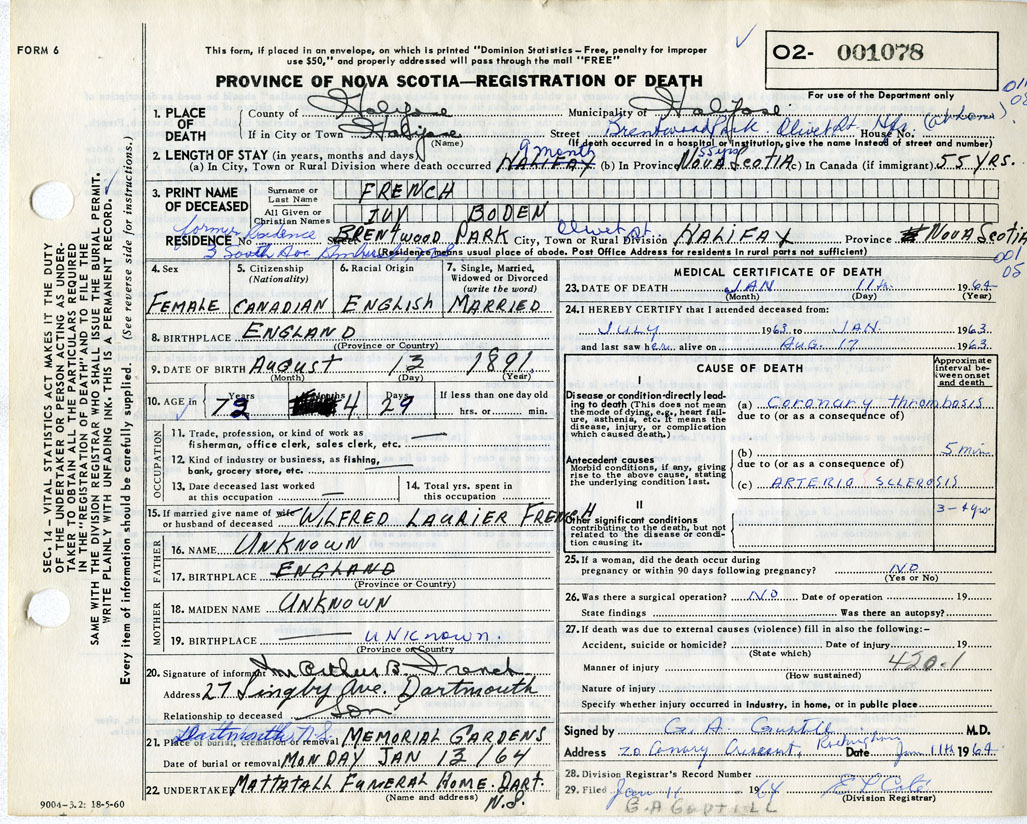 FORM 6
This form, if placed in an envelope, on which is printed "Dominion Statistics – Free, penalty for improper
use $50," and properly addressed will pass through the mail "FREE"
02- 001078
For use of the Department only
PROVINCE OF NOVA SCOTIA—REGISTRATION OF DEATH
1. PLACE OF DEATH
County of Halifax Municipality of Halifax
If in City or Town Halifax Street Brentwood Park House No.
(Name) (If death occurred in a hospital or institution, give name instead of street and number)
2. LENGTH OF STAY (in years, months and days) 9 month 55 yrs
(a) In City, Town or Rural Division where death occurred HALIFAX (b) In Province NOVA SCOTIA (c) In Canada (if immigrant) 55 YRS.
3. PRINT NAME OF DECEASED
Surname or Last Name FRENCH
All Given or Christian Names IVY BODEN
former residence
RESIDENCE No. Street BRENTWOOD PARK City, Town or Rural Division HALIFAX Province NOVA SCOTIA
3 South Ave
(Residence means usual place of abode. Post Office Address for residents in rural parts not sufficient)
001
05
4. Sex 5. Citizenship (Nationality) 6. Racial Origin 7. Single, Married, Widowed or Divorced (write the word)
FEMALE CANADIAN ENGLISH MARRIED
8. BIRTHPLACE ENGLAND
(Province or Country)
9. DATE OF BIRTH AUGUST 13 1891
(Month) (Day) (Year)
10. AGE in 72 Years 4 Months 29 Days If less than one day old
hrs. or min.
OCCUPATION
11. Trade, profession, or kind of work as
fisherman, office clerk, sales clerk, etc. —
12. Kind of industry or business, as fishing,
bank, grocery store, etc. —
13. Date deceased last worked
at this occupation —
14. Total yrs. spent in
this occupation
15. If married give name of wife
or husband of deceased WILFRED LAURIER FRENCH
FATHER
16. NAME UNKNOWN
17. BIRTHPLACE ENGLAND
(Province or Country)
MOTHER
18. MAIDEN NAME UNKNOWN
19. BIRTHPLACE — UNKNOWN.
(Province or Country)
20. Signature of informant Arthur B. French
Address 27 Lingby Ave. Dartmouth
Relationship to deceased Son
Dartmouth, N.S.
21. Place of burial, cremation or removal MEMORIAL GARDENS
Date of burial or removal MONDAY JAN 13/64
22. UNDERTAKER MATTATALL FUNERAL HOME. DART.
(Name and address) N.S.
9004–3.2: 18-5-60
MEDICAL CERTIFICATE OF DEATH
23. DATE OF DEATH JAN 11th 1964
(Month) (Day) (Year)
24. I HEREBY CERTIFY that I attended deceased from:
JULY 1963 to JAN 1963
and last saw her alive on AUG. 17 1963.
CAUSE OF DEATH
Approximate interval between onset and death
I
Disease or condition directly leading to death (This does not mean
the mode of dying, e.g., heart failure, asthenia, etc. It means the
disease, injury, or complication
which caused death.)
(a) Coronary thrombosis
due to (or as a consequence of)
Antecedent causes
Morbid conditions, if any, giving
rise to the above cause, stating
the underlying condition last.
(b) 5 min
due to (or as a consequence of)
(c) ARTERIO SCLEROSIS
II
3-4 yrs
Other significant conditions
contributing to the death, but not
related to the disease or condition causing it.
25. If a woman, did the death occur during
pregnancy or within 90 days following pregnancy? NO
(Yes or No)
26. Was there a surgical operation? NO Date of operation 19
State findings Was there an autopsy?
27. If death was due to external causes (violence) fill in also the following:–
Accident, suicide or homicide? Date of injury 19
(State which)
420.1
Manner of injury
(How sustained)
Nature of injury
Specify whether injury occurred in Industry, in home, or in public place
Signed by G. A. Guptill M.D.
Address 20 Canary Crescent, Rockingham Date Jan 11th 1964
28. Division Registrar's Record Number
29. Filed Jan 11 1964
(Division Registrar)
G A GUPTILL
SEC. 14 – VITAL STATISTICS ACT MAKES IT THE DUTY
OF THE UNDERTAKER OR PERSON ACTING AS UNDER-
TAKER TO OBTAIN ALL THE PARTICULARS REQUIRED
IN THE "REGISTRATION OF DEATH" AND TO FILE THE
SAME WITH THE DIVISION REGISTRAR WHO SHALL ISSUE THE BURIAL PERMIT.
WRITE PLAINLY WITH UNFADING INK–THIS IS A PERMANENT RECORD.
Every item of information should be carefully supplied. (See reverse side for instructions.)